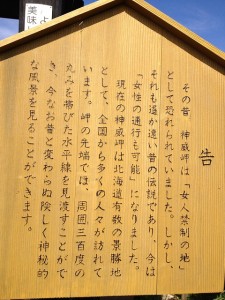 告
その昔、神威岬は「女人禁制の地」
として恐れられていました。しかし、
それも遥か遠い昔の伝説であり、今は
「女性の通行も可能」になりました。
現在の神威岬は北海道有数の景勝地
として、全国から多くの人々が訪れて
います。岬の先端では、周囲三百度の
丸みを帯びた水平線を見渡すことがで
き、今なお昔と変わらぬ険しく神秘的
な風景を見ることができます。
美味し